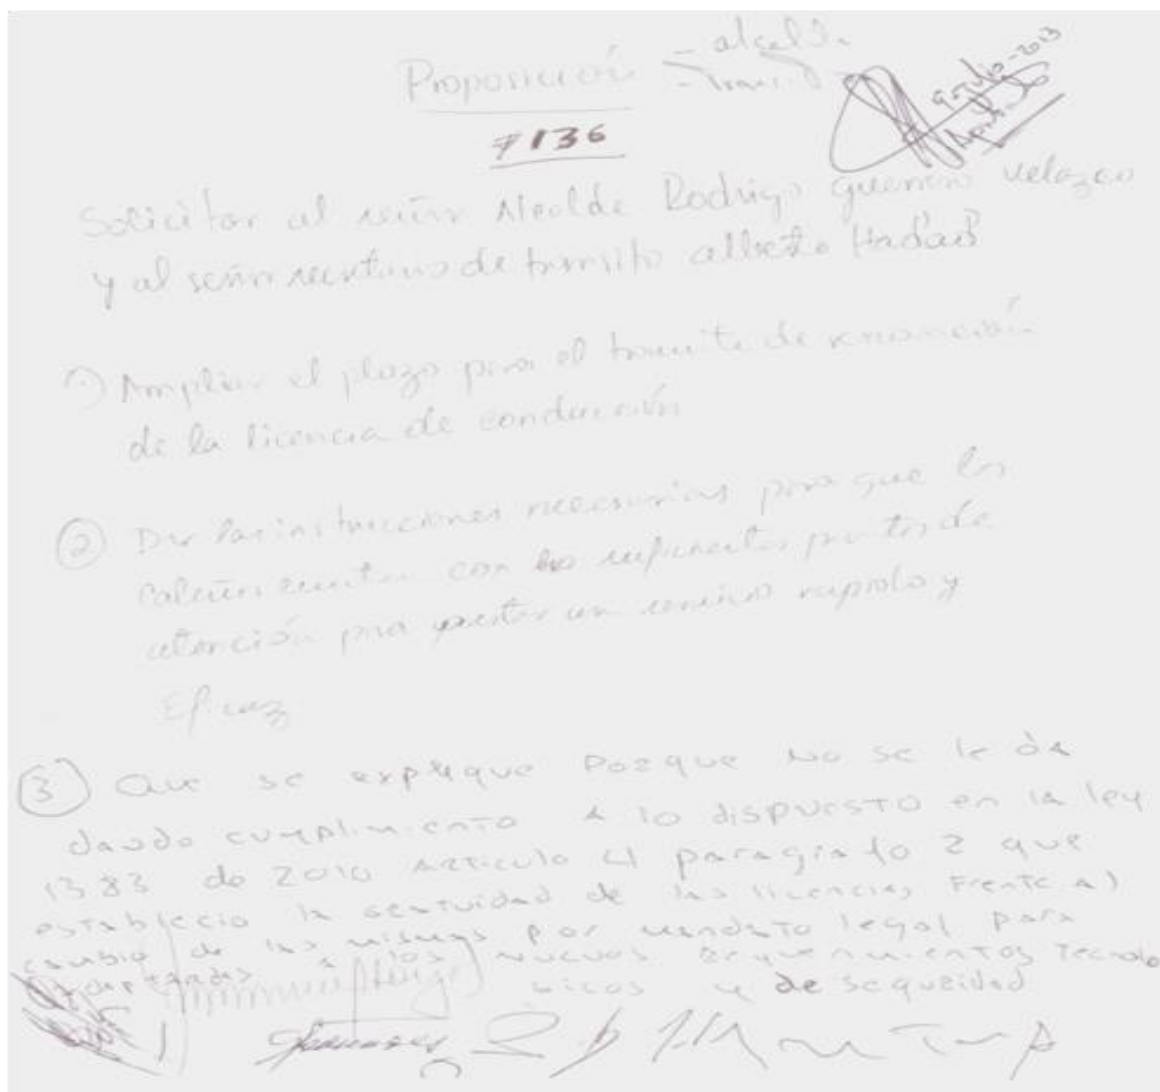 Proposición - alcalde
- Transito
7136
9 Julio-2013
Solicitar al señor Alcalde Rodrigo guerrero velazco
y al señor secretario de transito alberto Hadad
1) Ampliar el plazo para el tramite de renovación
de la licencia de conducción
2 Dar las instrucciones necesarias para que los
caleños cuenten con los suficientes puntos de
atención para prestar un servicio rapido y
Eficaz
3 Que se explique Porque No se le da
dando cumplimiento A lo dispuesto en la ley
1383 de 2010 Articulo 4 paragrafo 2 que
establecio la gratuidad de las licencias Frente al
cambio de las mismas por mandato legal para
adaptarlas a los nuevos requerimientos Tecnolo
gicos y de seguridad